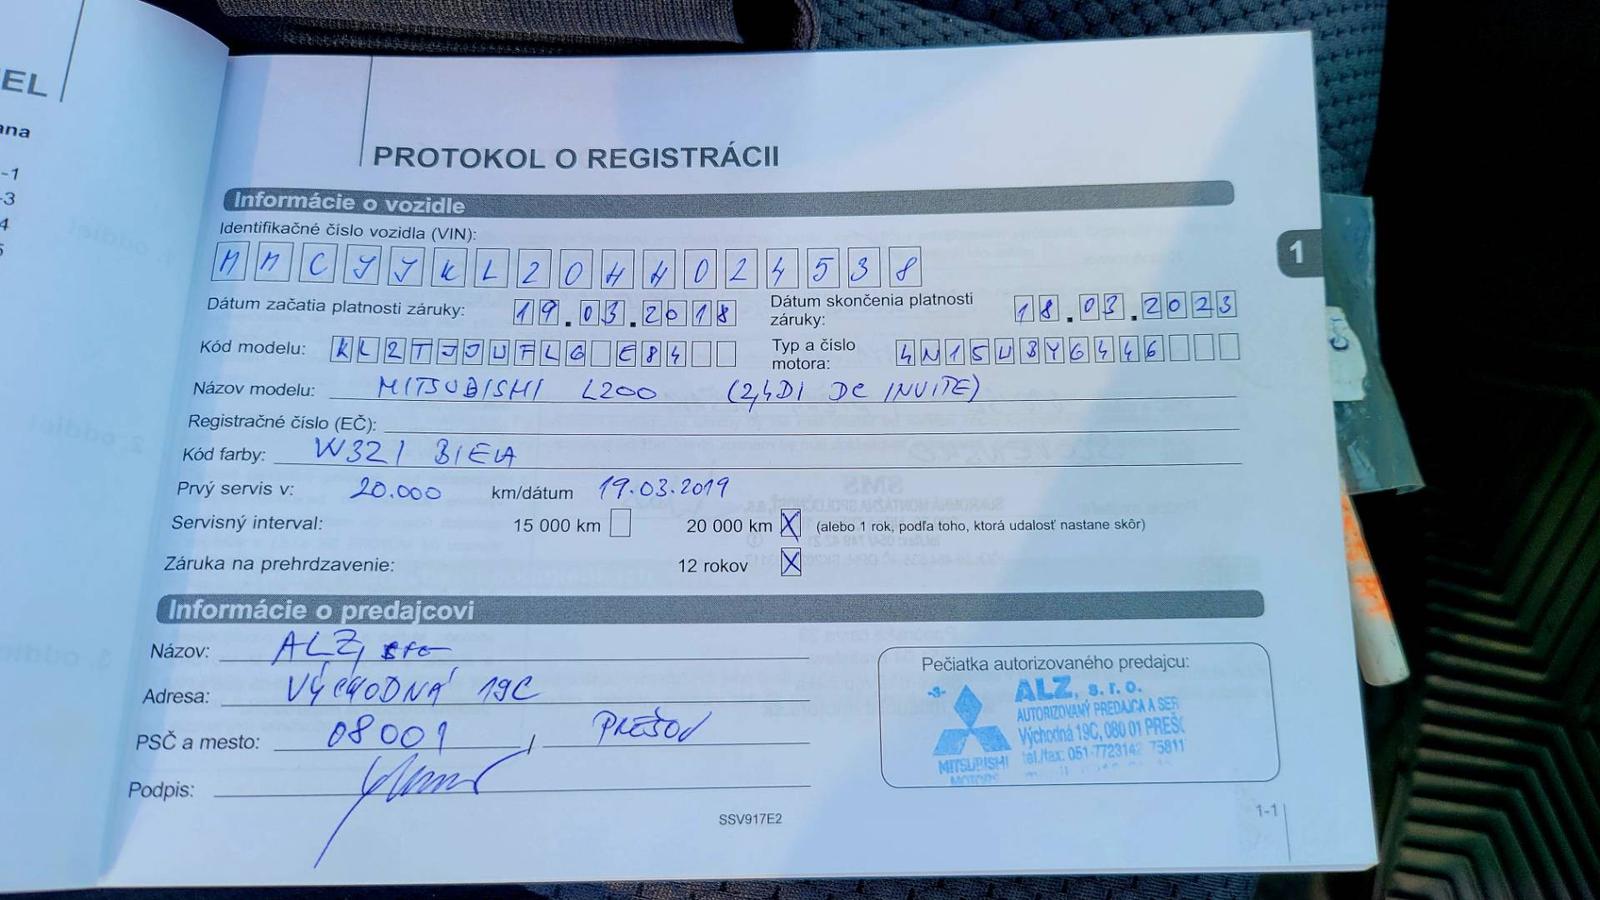 EL
ana
-1
-3
4
5
PROTOKOL O REGISTRÁCII
Informácie o vozidle
1
Identifikačné číslo vozidla (VIN):
MMCJJKL20HH024538
Dátum začatia platnosti záruky: 19.03.2018 Dátum skončenia platnosti záruky: 18.03.2023
Kód modelu: KL2TJJUFLG E84 Typ a číslo motora: 4N15UBY6446
Názov modelu: MITSUBISHI L200 (2,4DI DC INVITE)
Registračné číslo (EČ):
Kód farby: W321 BIELA
Prvý servis v: 20.000 km/dátum 19.03.2019
Servisný interval: 15 000 km 20 000 km X (alebo 1 rok, podľa toho, ktorá udalosť nastane skôr)
Záruka na prehrdzavenie: 12 rokov X
Informácie o predajcovi
Názov: ALZ, sro
Adresa: VÝCHODNÁ 19C
PSČ a mesto: 08001 / PREŠOV
Podpis:
Pečiatka autorizovaného predajcu:
-3-
ALZ, s. r. o.
AUTORIZOVANÝ PREDAJCA A SER
Východná 19C, 080 01 PREŠ
tel./fax: 051-7723142 75811
MITSUBISHI
MOTORS
SSV917E2
1-1